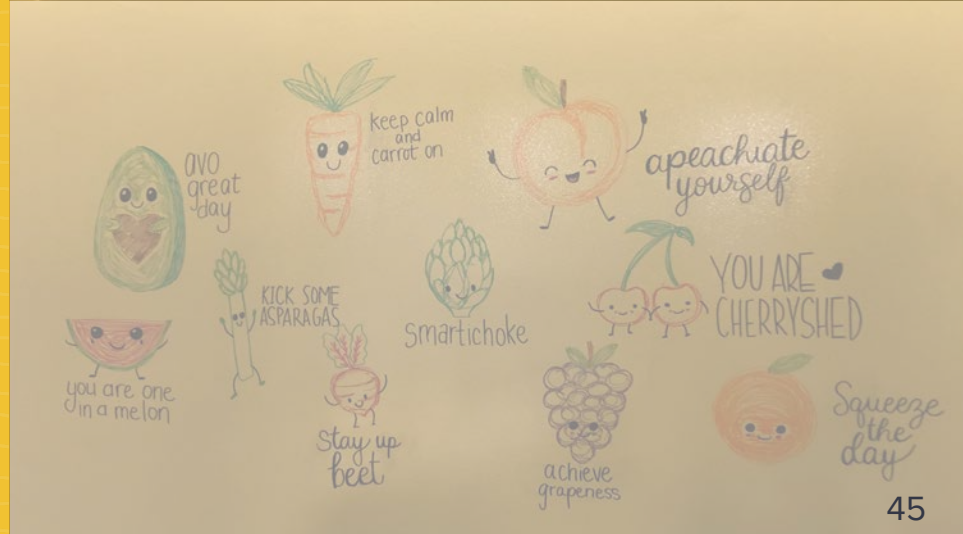 keep calm
and
carrot on
apeachiate
yourself
avo
great
day
KICK SOME
ASPARAGAS
smartichoke
YOU ARE
CHERRYSHED
you are one
in a melon
Stay up
beet
achieve
grapeness
Squeeze
the
day
45